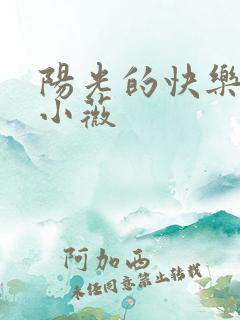 陽光的快樂
小薇
阿加西
未经同意禁止转载